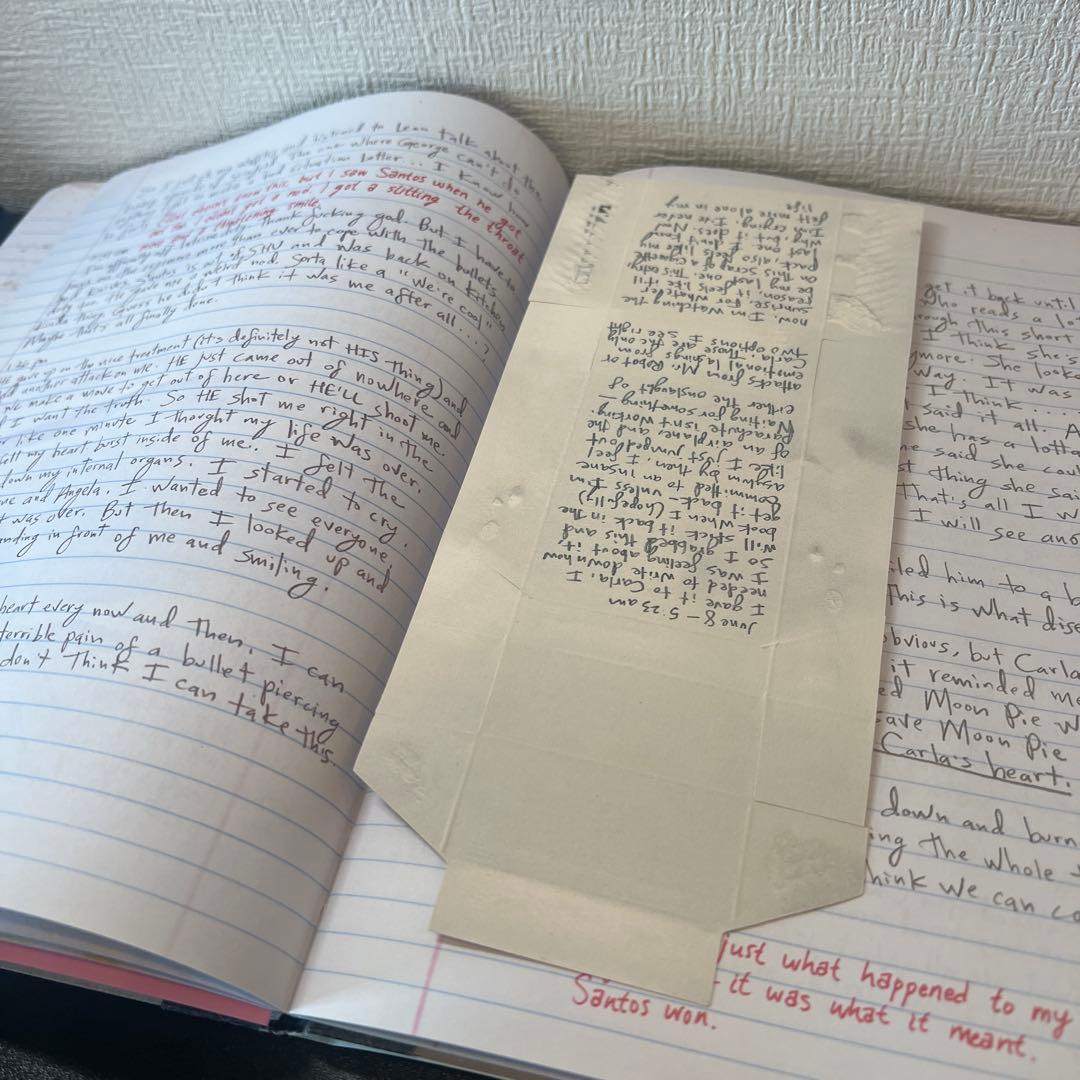 and listened to Leon talk about the
The one where George can't do
situation later... I know how
this, but I saw Santos when he got
did not get a nod. I got a slitting the throat
smile.
Thank fucking god. But I have to
more than ever to cope with the bullets
SHU and was back on kitchen
He gave me a weird nod. Sorta like a "we're cool"
kinda thing. Guess he didn't think it was me after all...?
Maybe that's all finally done.
up on the nice treatment (it's definitely not HIS thing) and
another attack on me. HE just came out of nowhere and
we make a move to get out of here or HE'LL shoot me.
I want the truth. So HE shot me right in the
like one minute I thought my life was over.
my heart burst inside of me. I felt the
down my internal organs. I started to cry.
and Angela. I wanted to see everyone
was over. But then I looked up and
standing in front of me and smiling.
heart every now and then. I can
terrible pain of a bullet piercing
don't think I can take this.
June 8 – 5:23am
I gave it to Carla. I
needed to write down how
I was feeling about it,
so I grabbed this and
will stick it back in the
book when I (hopefully)
get it back – unless I'm
committed to an insane
asylum by then. I feel
like I just jumped out
of an airplane and the
parachute isn't working.
Waiting for something,
either the onslaught of
attacks from Mr. Robot or
emotional lashings from
Carla. Those are the only
two options I see right
now. I'm watching the
sunrise. For whatever
reason, it feels like it'll
be my last one. This entry,
on this scrap of a cigarette
pack, also feels like my
last one. I don't know
why, but it does. Now
I'm crying. I've never
felt more alone in my
life.
get it back until
who reads a lo
rough this short
I think she's
more. She looke
way. It was
I think...
said it all. A
she has a lotta
she said she cou
thing she sai
That's all I w
I will see ano
iled him to a b
This is what dise
obvious, but Carla
it reminded me
ed Moon Pie w
save Moon Pie
Carla's heart.
down and burn
ing the whole
think we can co
just what happened to my
it was what it meant.
Santos won.